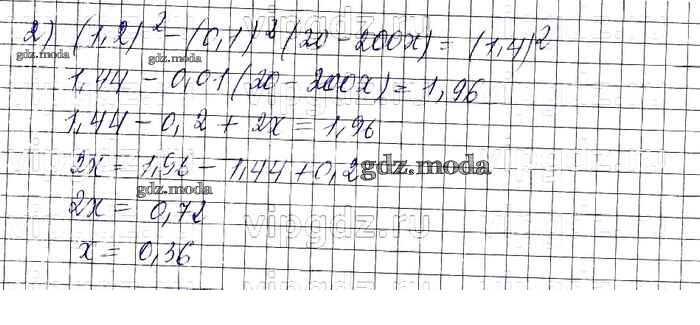 2) (1,2)² - (0,1)² (20 - 200x) = (1,4)²
1,44 - 0,01 (20 - 200x) = 1,96
1,44 - 0,2 + 2x = 1,96
2x = 1,96 - 1,44 + 0,2
2x = 0,72
x = 0,36
gdz.moda
gdz.moda
gdz.moda
gdz.moda
vipgdz.ru
vipgdz.ru
vipgdz.ru